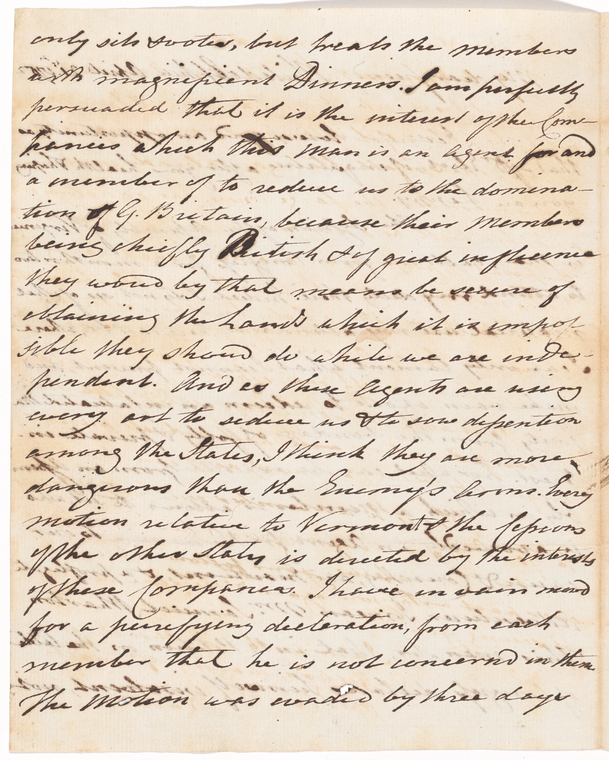 only sits & votes, but treats the members
with magnificent Dinners. I am perfectly
persuaded that it is the interest of the Com-
panies which this man is an agent for and
a member of to reduce us to the domina-
tion of G. Britain, because their members
being chiefly British & of great influence
they woud by that means be secure of
obtaining the Lands which it is impos-
sible they shoud do while we are inde-
pendent. And as these Agents are using
every art to seduce us & to sow dissention
among the States, I think they are more
dangerous than the Enemy's Arms. Every
motion relative to Vermont & the Cessions
of the other States is directed by the interests
of these Companies. I have in vain movd
for a purifying declaration, from each
member that he is not concernd in them
The Motion was evaded by three days